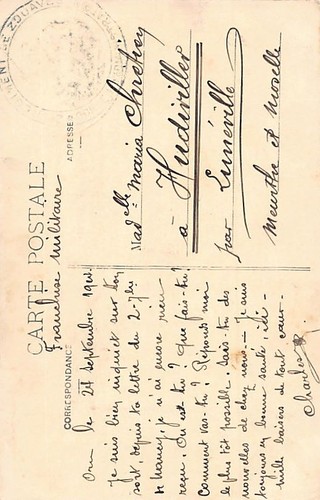 CARTE POSTALE
Franchise militaire
CORRESPONDANCE
ADRESSE
MENT DE ZOUAVES
Oran le 24 Septembre 1914
Je suis bien inquiet sur ton
sort, depuis ta lettre du 2-7bre
+ Nancy, je n'ai encore rien
reçu. Où es-tu ? Que fais-tu ?
Comment vas-tu ? Réponds-moi
le plus tôt possible. Sais-tu des
nouvelles de chez nous. — Je suis
toujours en bonne santé,
mille baisers de tout cœur.
Charles
Madelle Maria Chrétien
à Hudiviller
par Lunéville
Meurthe et Moselle